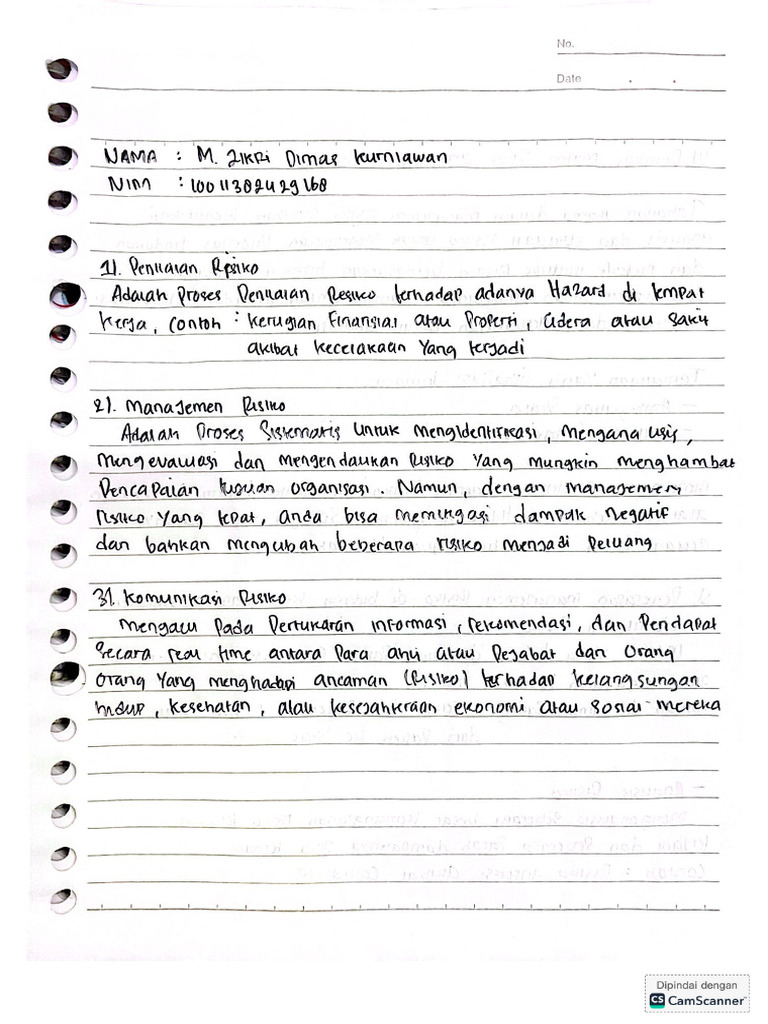 No.
Date . .
NAMA : M. ZIKRI DIMAS KURNIAWAN
NIM : 10011382429168
1). Penilaian Resiko
Adalah Proses Penilaian Resiko terhadap adanya Hazard di tempat
kerja, contoh : kerugian Finansial atau Properti, Cidera atau Sakit
akibat kecelakaan Yang terjadi
2). Manajemen Risiko
Adalah Proses Sistematis untuk mengidentifikasi, menganalisis,
mengevaluasi dan mengendalikan Risiko Yang mungkin menghambat
Pencapaian tujuan organisasi. Namun, dengan manajemen
risiko Yang tepat, anda bisa memitigasi dampak negatif
dan bahkan mengubah beberapa risiko menjadi peluang
3). Komunikasi Risiko
mengacu Pada Pertukaran informasi, rekomendasi, dan Pendapat
Secara real time antara Para ahli atau Pejabat dan Orang
Orang Yang menghadapi ancaman (Risiko) terhadap kelangsungan
hidup, kesehatan, atau kesejahteraan ekonomi atau Sosial mereka
Dipindai dengan
CS CamScanner